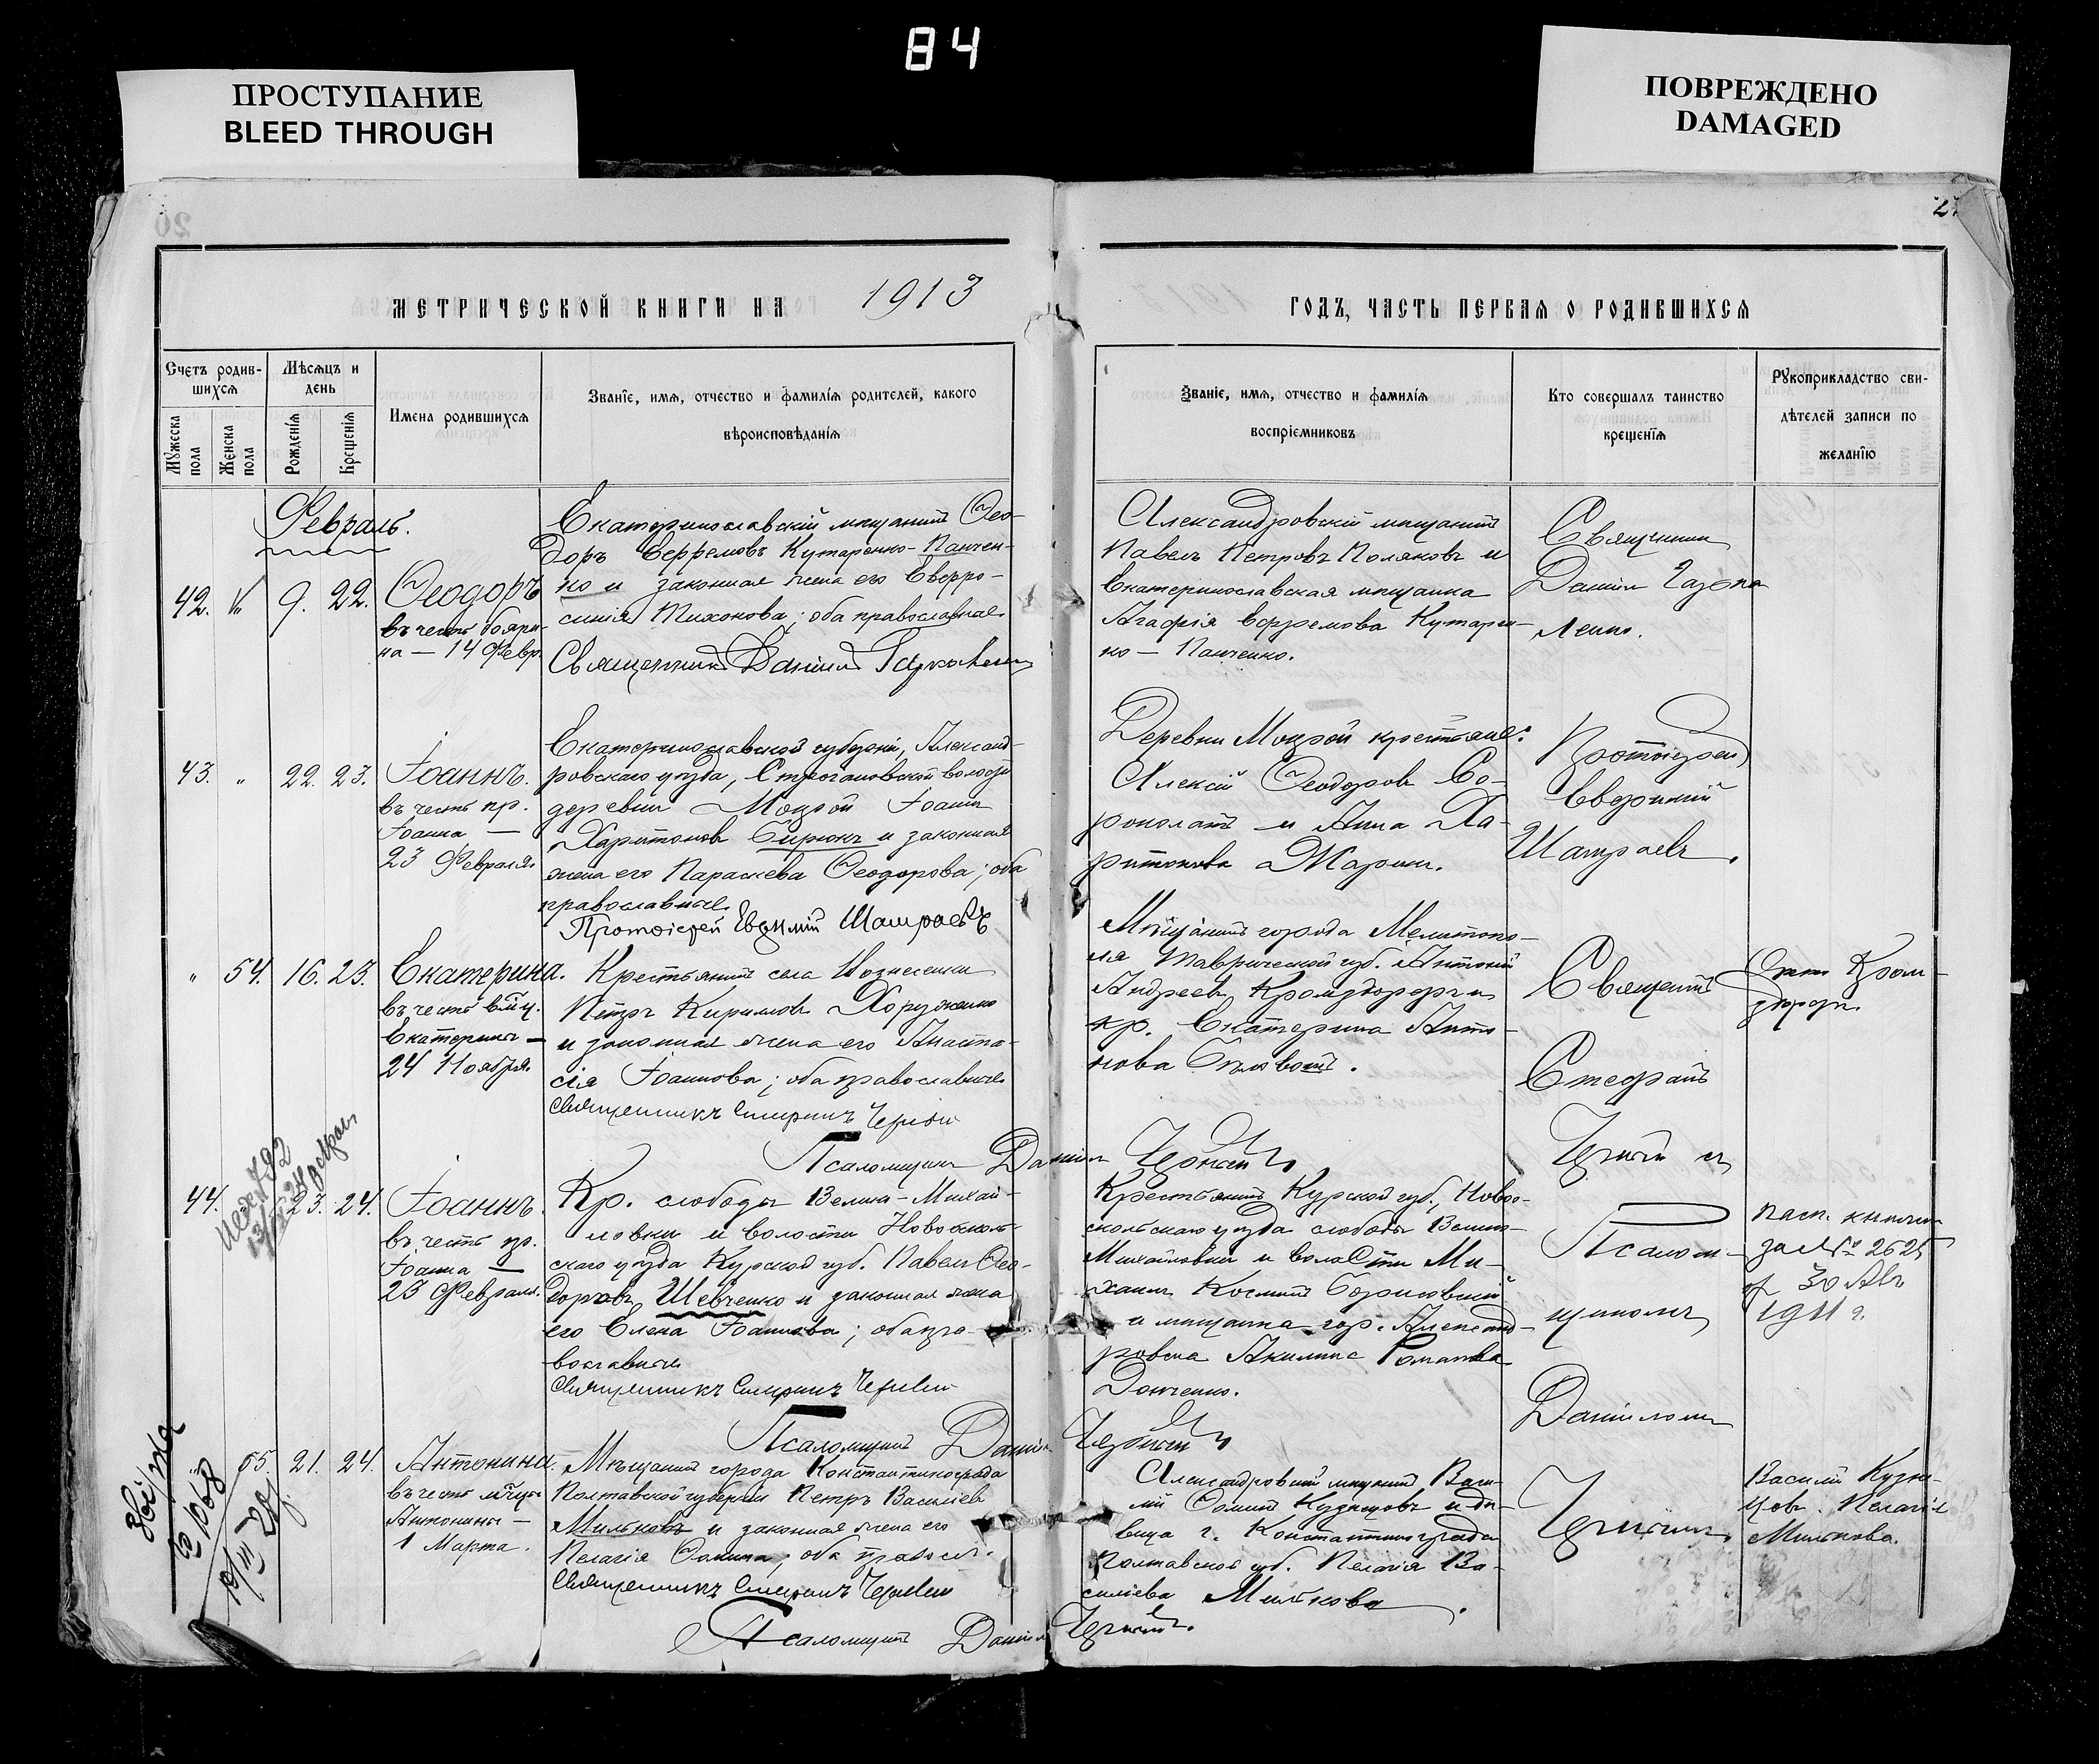 84
ПРОСТУПАНИЕ
BLEED THROUGH
ПОВРЕЖДЕНО
DAMAGED
МЕТРИЧЕСКОЙ КНИГИ НА 1913
ГОДЪ, ЧАСТЬ ПЕРВАЯ О РОДИВШИХСЯ
Счетъ родив-
шихся
Мужеска
пола
Женска
пола
Мѣсяцъ и
день
Рожденія
Крещенія
Имена родившихся
Званіе, имя, отчество и фамилія родителей, какого
вѣроисповѣданія
Званіе, имя, отчество и фамилія
воспріемниковъ
Кто совершалъ таинство
крещенія
Рукоприкладство сви-
дѣтелей записи по
желанію
Февраль.
42. " 9. 22.
Ѳеодоръ
въ честь бояри-
на — 14 Февр.
Екатеринославскій мѣщанинъ Ѳео-
доръ Ефремовъ Кутаренко-Панчен-
ко и законная жена его Евфро-
синія Тихонова; оба православные
Священникъ Даніилъ
Александровскій мѣщанинъ
Павелъ Петровъ Поляковъ и
Екатеринославская мѣщанка
Агафія Ефремова Кутарен-
ко — Панченко.
Священникъ
Даніилъ
43. " 22. 23.
Іоаннъ.
въ честь пр.
Іоанна —
23 Февраля.
Екатеринославской губерніи, Александ-
ровскаго уѣзда, волости
деревни Мокрой Іоаннъ
Харитоновъ Бирюкъ и законная
жена его Параскева Ѳеодорова; оба
православные
Протоіерей Евѳимій Шамраевъ
Деревни Мокрой крестьяне:
Алексій Ѳеодоровъ
и Анна Ха-
ритонова
Протоіерей
Евѳимій
Шамраевъ.
" 54. 16. 23.
Екатерина.
въ честь влмц.
Екатерины —
24 Ноября.
Крестьянинъ села Вознесенки
Петръ Кириловъ Хорунженко
и законная жена его Анаста-
сія Іоаннова; оба православные
Священникъ Стефанъ Черный
Псаломщикъ Даніилъ Черный
Мѣщанинъ города Мелитопо-
ля Таврической губ. Антоній
Андреевъ и
кр. Екатерина Анто-
нова
Священникъ
Стефанъ
Черный съ
44. 23. 24.
Іоаннъ.
въ честь пр.
Іоанна —
23 Февраля.
Кр. слободы Велико-Михай-
ловки и волости Новооскол-
скаго уѣзда Курской губ. Павелъ Ѳео-
доровъ Шевченко и законная жена
его Елена Іоаннова; оба пра-
вославные
Священникъ Стефанъ Черный
Псаломщикъ Даніилъ Черный
Крестьянинъ Курской губ., Ново-
оскольскаго уѣзда слободы Велико-
Михайловки и волости Ми-
хаилъ Косминъ Борисовскій
и мѣщанка гор. Александ-
ровска Акилина Романова
Донченко.
Псалом-
щикомъ
Даніиломъ
Чернымъ
Пасп. книжка
за № 2625
30 Авг
1911 г.
55. 21. 24.
Антонина.
въ честь мчцы
Антонины —
1 Марта.
Мѣщанинъ города Константинограда
Полтавской губерніи Петръ Василіевъ
Мильковъ и законная жена его
Пелагія Ѳомина; оба правосл.
Священникъ Стефанъ Черный
Псаломщикъ Даніилъ Черный.
Александровскій мѣщанинъ Васи-
лій Ѳоминъ Кузнецовъ и дѣ-
вица г. Константинограда
Полтавской губ. Пелагія Ва-
силіева Милькова.
Василій Кузне-
цовъ. Пелагія
Милькова.